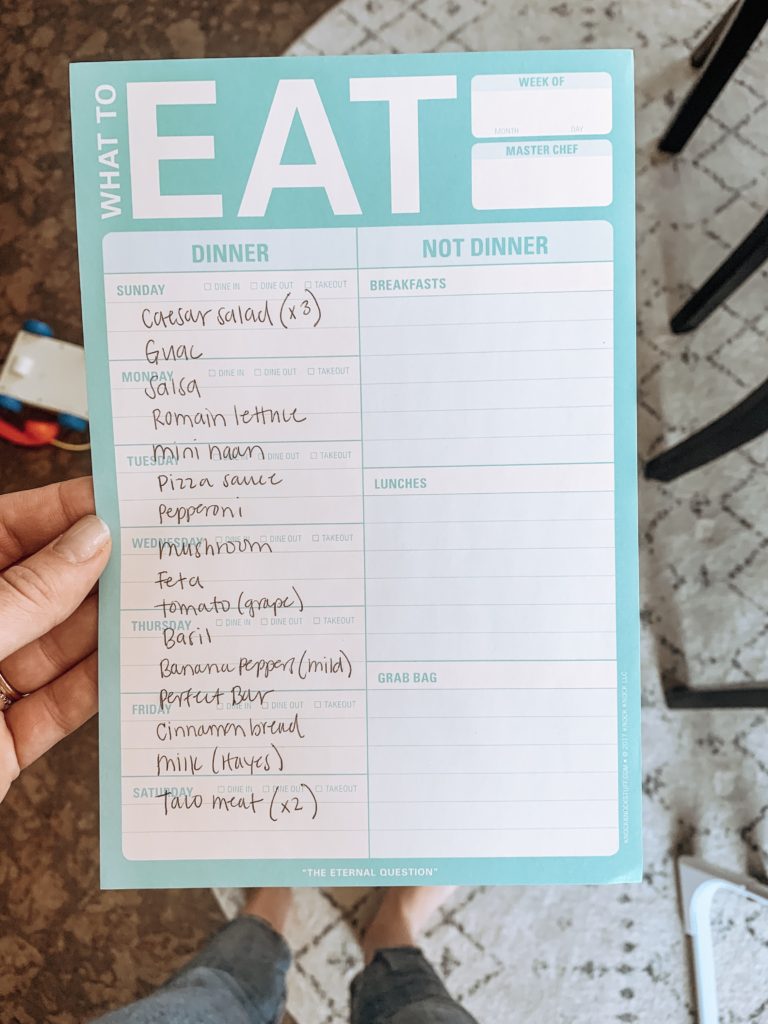 WHAT TO
EAT
WEEK OF
MONTH DAY
MASTER CHEF
DINNER
SUNDAY ☐ DINE IN ☐ DINE OUT ☐ TAKEOUT
Caesar salad (x3)
Guac
MONDAY ☐ DINE IN ☐ DINE OUT ☐ TAKEOUT
Salsa
Romain lettuce
mini naan
TUESDAY ☐ DINE OUT ☐ TAKEOUT
Pizza sauce
Pepperoni
WEDNESDAY ☐ DINE IN ☐ DINE OUT ☐ TAKEOUT
mushroom
Feta
tomato (grape)
THURSDAY ☐ DINE IN ☐ DINE OUT ☐ TAKEOUT
Basil
Banana Peppers (mild)
Perfect Bar
FRIDAY ☐ DINE IN ☐ DINE OUT ☐ TAKEOUT
Cinnamon bread
milk (Hayes)
SATURDAY ☐ DINE IN ☐ DINE OUT ☐ TAKEOUT
Taco meat (x2)
NOT DINNER
BREAKFASTS
LUNCHES
GRAB BAG
KNOCKKNOCKSTUFF.COM • © 2017 KNOCK KNOCK LLC
"THE ETERNAL QUESTION"